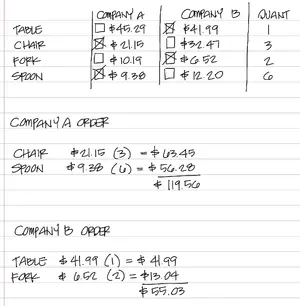 COMPANY A COMPANY B QUANT
TABLE ☐ $45.29 ☒ $41.99 1
CHAIR ☒ $21.15 ☐ $32.47 3
FORK ☐ $10.19 ☒ $6.52 2
SPOON ☒ $9.38 ☐ $12.20 6
COMPANY A ORDER
CHAIR $21.15 (3) = $63.45
SPOON $9.38 (6) = $56.28
$119.56
COMPANY B ORDER
TABLE $41.99 (1) = $41.99
FORK $6.52 (2) = $13.04
$55.03